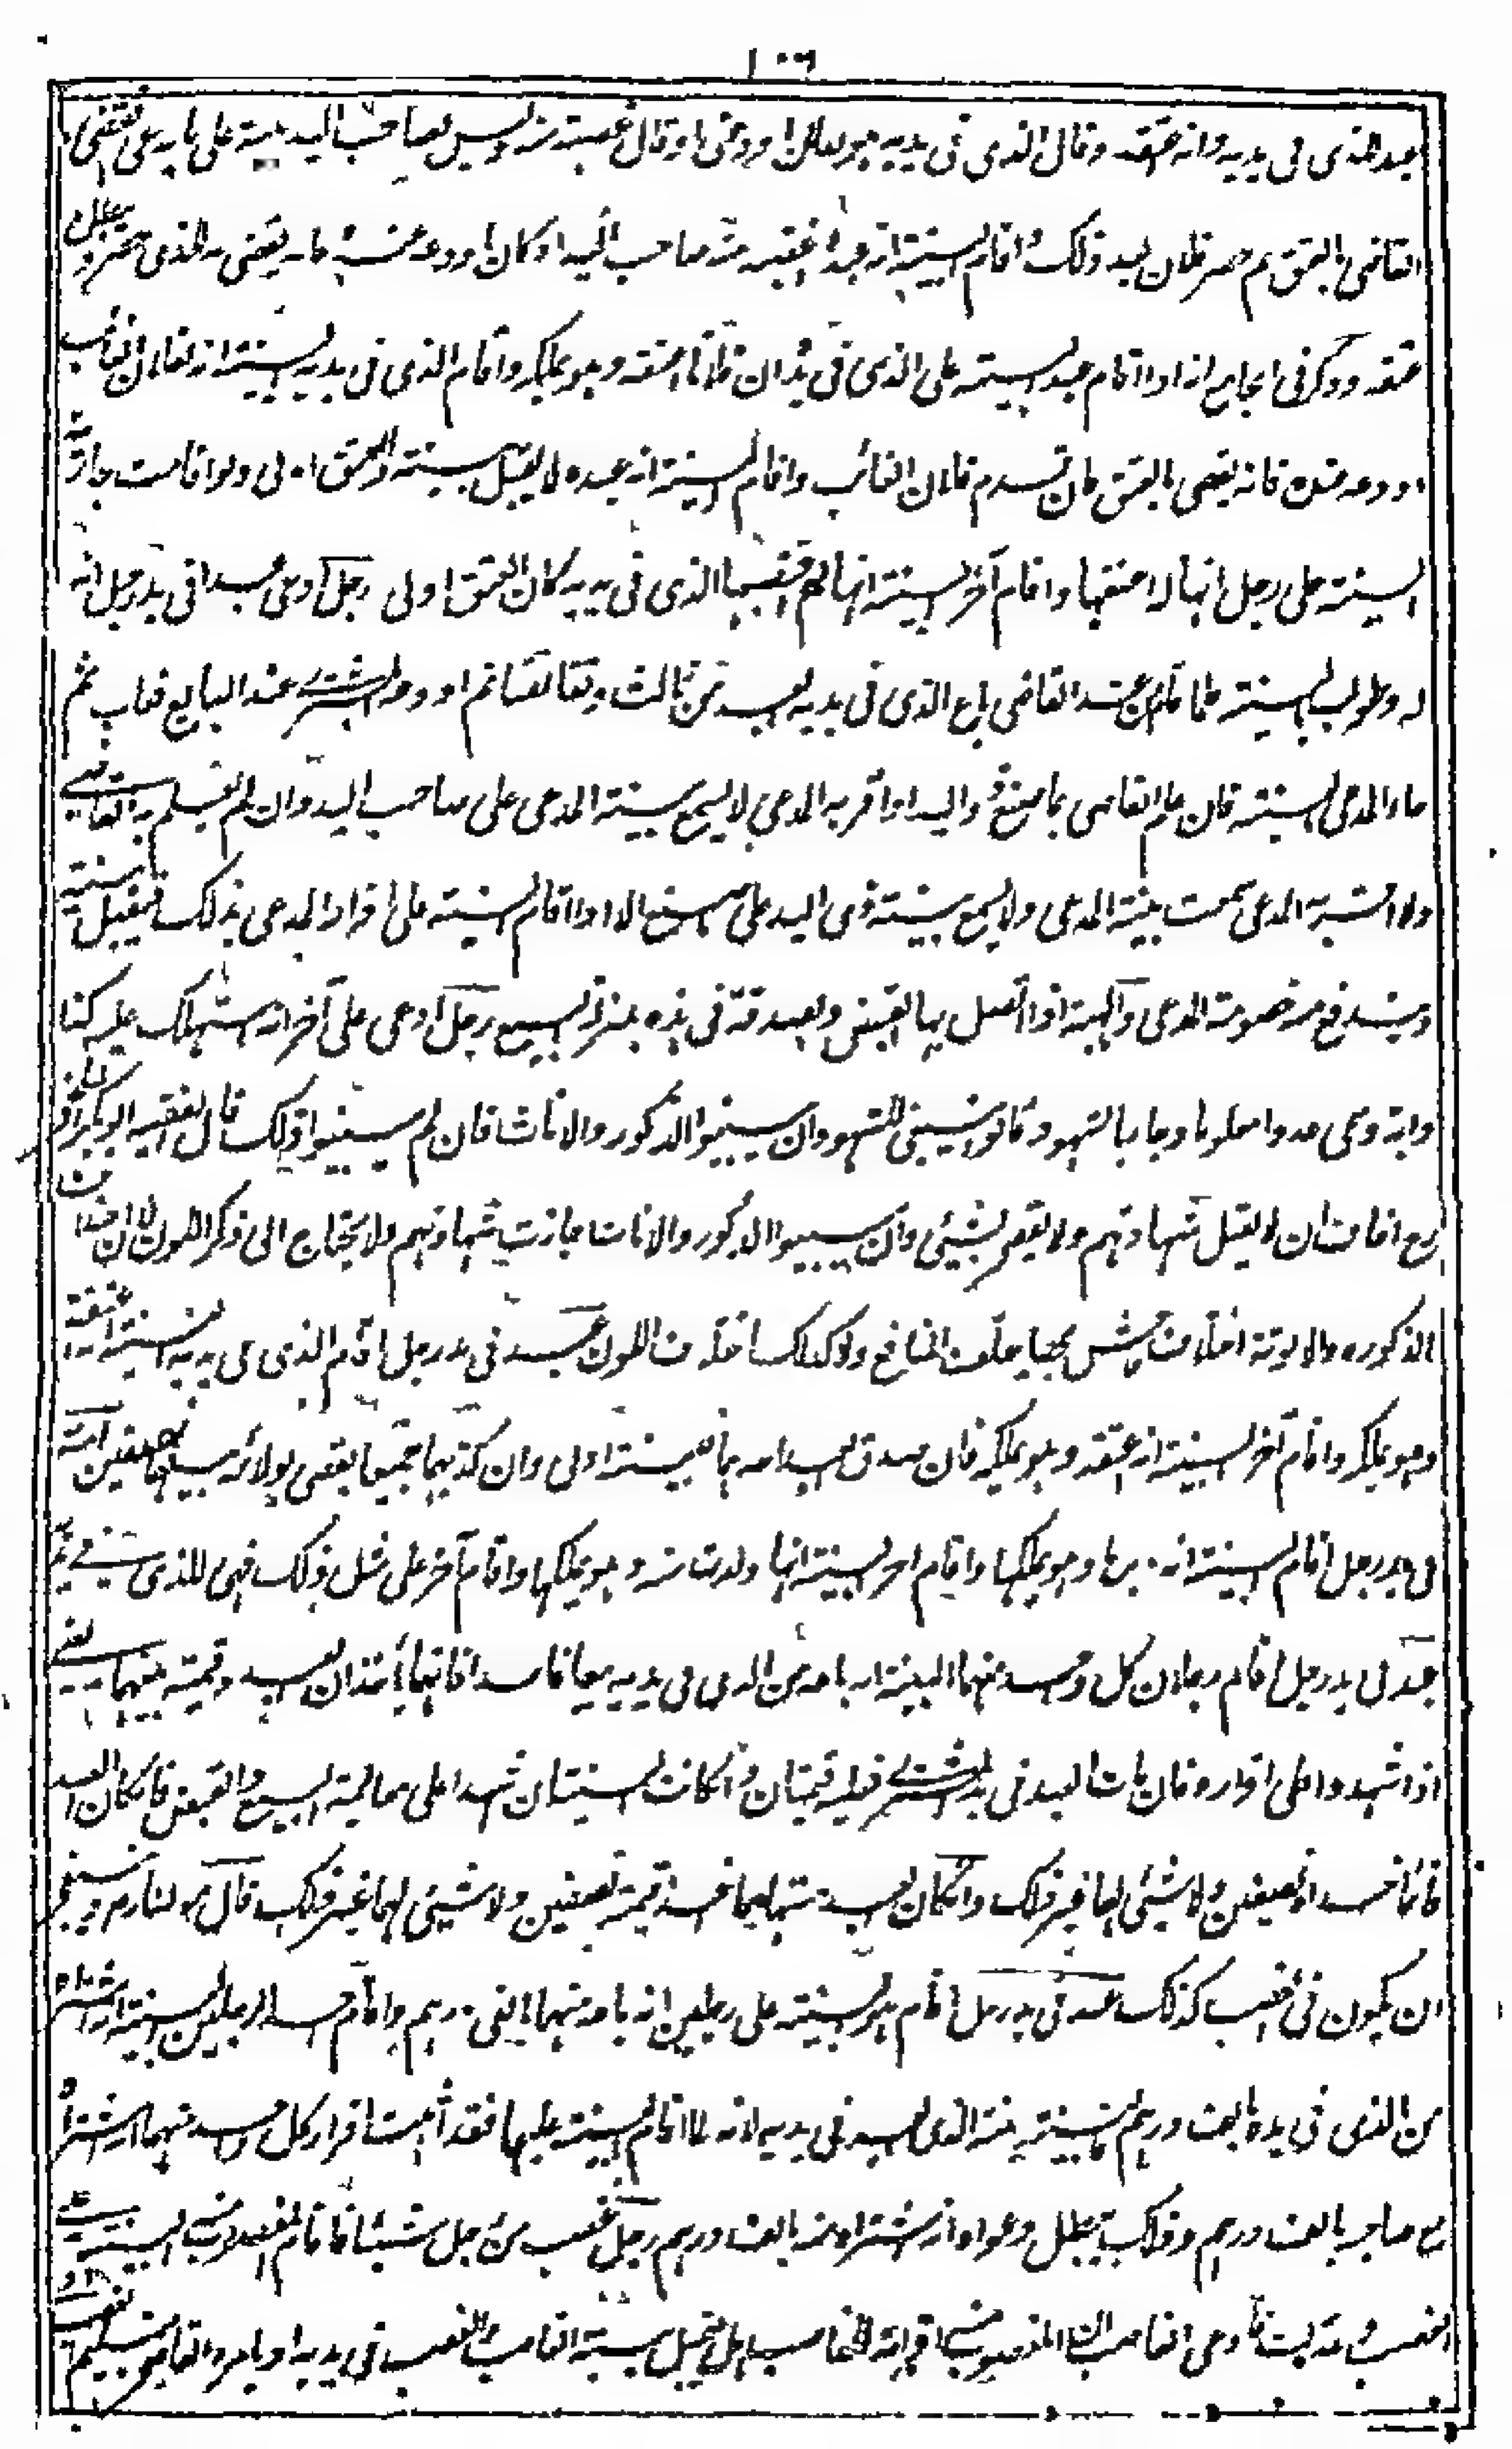 ١٠٦
عبد الذي في يديه وانه عتقه وقال الذي في يديه هو لفلان اودعني او قال غصبته منه وليس لصاحب اليد بينة على ما يدعي يقضي
القاضي بالعتق ثم حضر فلان بعد ذلك اقام البينة انه عبده غصبه منه صاحب اليد او كان اودعه فانه يقضى به للذي
عتقه وذكر في الجامع انه اذا اقام عبد البينة على الذي في يده ان فلانا اعتقه وهو يملكه واقام الذي في يديه البينة ان فلان الغائب
اودعه فانه يقضى بالعتق فان قدم فلان الغائب واقام البينة انه عبده لا يقبل بينته والعتق اولى ولو اقامت جارية
البينة على رجل انها له اعتقها واقام آخر البينة انها له غصبها الذي في يديه كان العتق اولى رجل ادعى عبدا في يد رجل انه
له وطولب بالبينة فلما قاما من عند القاضي باع الذي في يديه العبد من ثالث وتقابضا ثم اودعه المشتري عند البايع فغاب ثم
جاء المدعي بالبينة فان علم القاضي بما صنع ذو اليد او اقر به المدعي لا يسمع بينة المدعي على صاحب اليد وان لم يعلم به القاضي
ولا اقر به المدعي سمعت بينة المدعي ولا يسمع بينة ذي اليد على ما صنع الا اذا اقام البينة على اقرار المدعي بذلك فيقبل بينته
ويندفع عنه خصومة المدعي والهبة اذا اتصل بها القبض والصدقة في هذه بمنزلة البيع رجل ادعى على آخر انه استهلك عليه كذا
دابة وسمى عددا معلوما وجاء بالشهود قالوا ينبغي للشهود ان يبينوا الذكور والاناث فان لم يبينوا ذلك قال الفقيه ابو بكر
رح اخاف ان لا يقبل شهادتهم ولا يقضى بشيئ وان بينوا الذكور والاناث جازت شهادتهم ولا يحتاج الى ذكر اللون لان
الذكورة والانوثة اختلاف جنس يختلف المنافع ولا كذلك اختلاف اللون عبد في يد رجل اقام الذي في يديه البينة انه اعتقه
وهو يملكه واقام آخر البينة انه عتقه وهو يملكه فان صدق العبد احدهما فبينته اولى وان كذبهما جميعا يقضى بولائه بينهما نصفين امة
في يد رجل اقام البينة انه دبرها وهو يملكها واقام آخر البينة انها ولدت منه وهو يملكها واقام آخر على مثل ذلك فهي للذي هي في يده
عبد في يد رجل اقام رجلان كل واحد منهما البينة انه باعه من الذي في يديه بيعا فاسدا فانهما يأخذان العبد وقيمته بينهما يعني
اذا شهدوا على اقراره فان مات العبد في يد المشتري فعليه قيمتان وان كانت البينتان شهدا على معاينة البيع والقبض فان كان العبد
قائما اخذاه نصفين ولا شيئ لهما غير ذلك وان كان العبد مستهلكا اخذا قيمته نصفين ولا شيئ لهما غير ذلك قال مولانا رض وينبغي
ان يكون في الغصب كذلك عبد في يد رجل اقام هو البينة على رجلين انه باعه منهما بالفي درهم واقام احد الرجلين البينة انه اشتراه
من الذي في يده بالف درهم فالبينة بينة الذي العبد في يديه لانه لما اقام البينة عليهما فقد اثبت اقرار كل واحد منهما انه اشتراه
مع صاحبه بالف درهم وذلك يبطل دعواه انه اشتراه منه بالف درهم رجل غصب من رجل شيئا فاقام المغصوب منه البينة على
الغصب فادعى الغاصب ان المغصوب منه اقر انه للغاصب هل يقبل بينة الغاصب والغصب في يديه او يأمره القاضي بتسليم